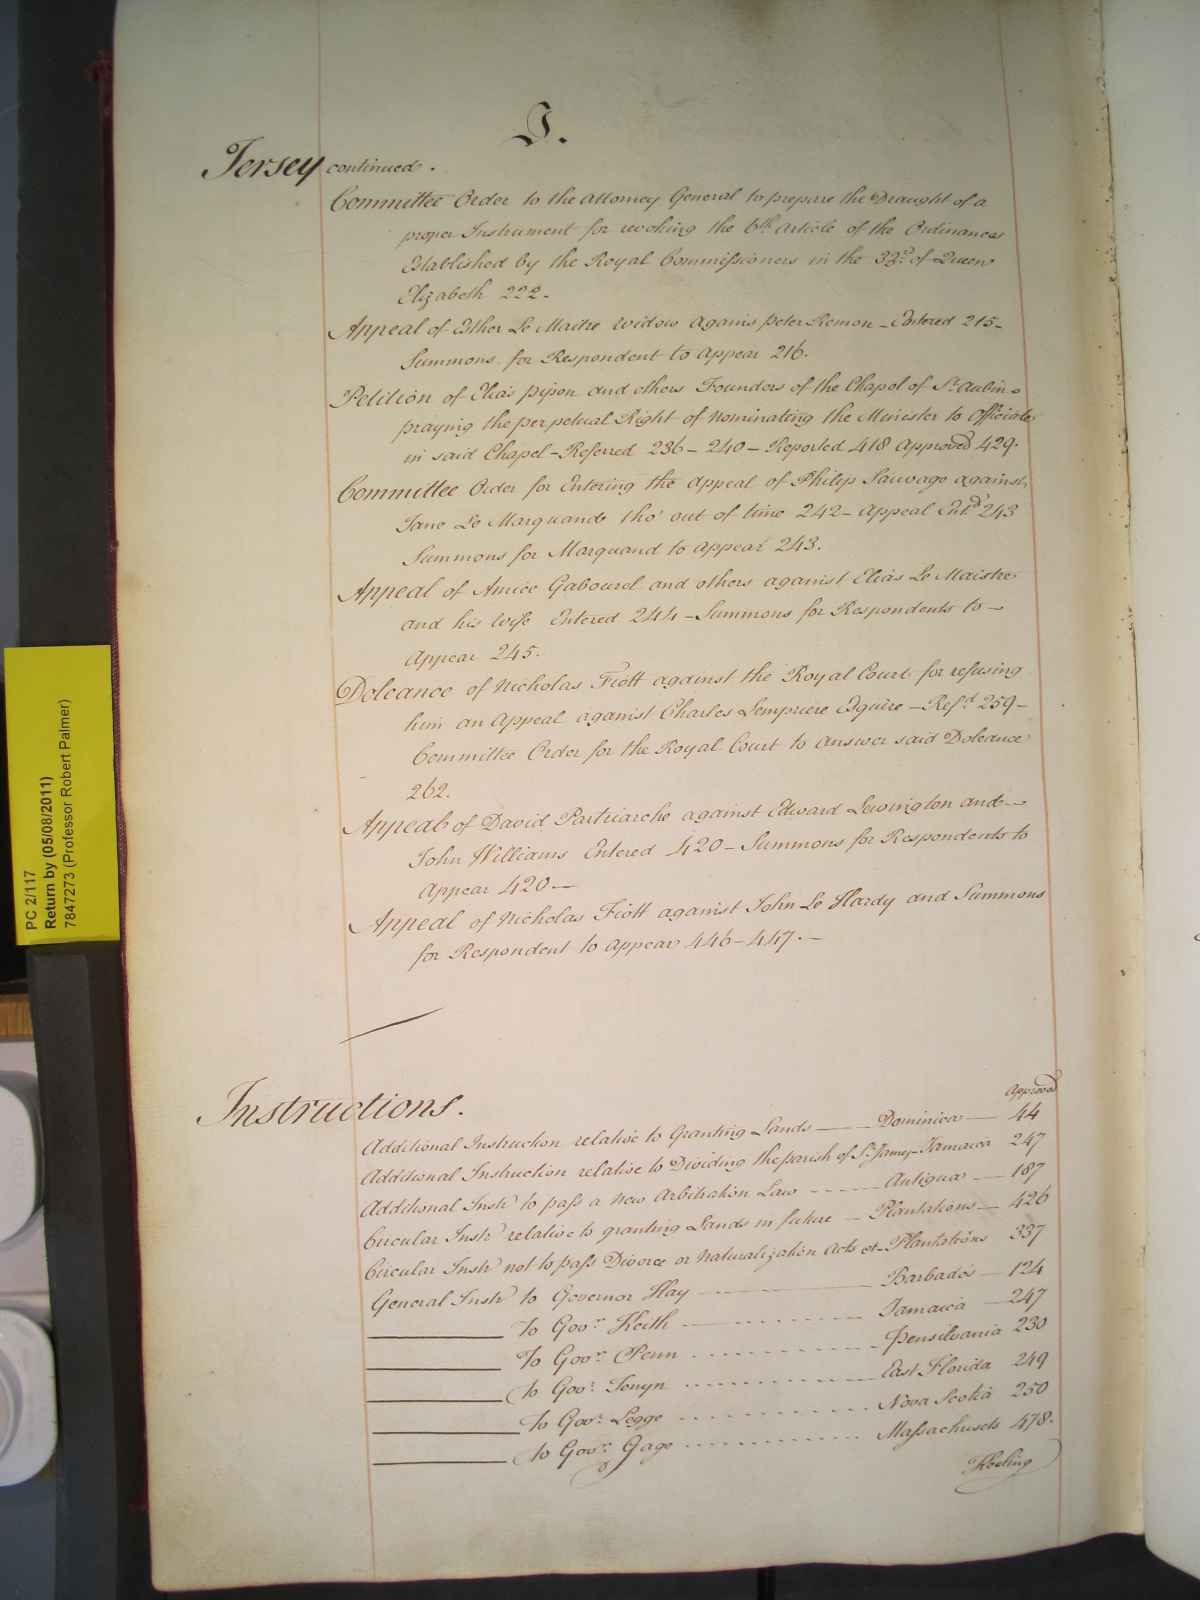 J.
Jersey continued.
Committee Order to the Attorney General to prepare the Draught of a
proper Instrument for revoking the 6th Article of the Ordinances
Established by the Royal Commissioners in the 33d of Queen
Elizabeth 222-
Appeal of Esther Le Maitre Widow agains Peter Remon - Entered 215-
Summons for Respondent to appear 216.
Petition of Elias Pipon and others Founders of the Chapel of St Aubin-
praying the perpetual Right of Nominating the Minister to Officiate
in said Chapel - Referred 236 - 240 - Reported 418 Approved 429.
Committee Order for Entering the Appeal of Philip Sauvage against
Jane Le Marquand tho' out of time 242 - Appeal Entd 243
Summons for Marquand to appear 243.
Appeal of Amice Gabourel and others against Elias Le Maistre
and his Wife Entered 244 - Summons for Respondents to -
Appear 245.
Doleance of Nicholas Fiott against the Royal Court for refusing
him an Appeal against Charles Lempriere Esquire - Refd 259 -
Committee Order for the Royal Court to answer said Doleance
262.
Appeal of David Patriarche against Edward Lewington and -
John Williams Entered 420 - Summons for Respondents to
Appear 420 -
Appeal of Nicholas Fiott against John Le Hardy and Summons
for Respondent to appear 446 - 447. -
Instructions.
Approved
Additional Instruction relative to Granting Lands — Dominica — 44
Additional Instruction relative to Dividing the parish of St James - Jamaica 247
Additional Instr to pass a New Arbitration Law - - - - Antigua — 187
Circular Instr relative to granting Lands in future — Plantations — 426
Circular Instr not to pass Divorce or Naturalization Acts et - Plantations 337
General Instr to Governor Hay — Barbados — 124
To Govr Keith - - - - Jamaica — 247
To Govr Penn - - - - Pensilvania 230
To Govr Tonyn - - - - East Florida 249
To Govr Legge - - - - Nova Scotia 250
To Govr Gage - - - - Massachusets 478.
Keeling
PC 2/117
Return by (05/08/2011)
7847273 (Professor Robert Palmer)